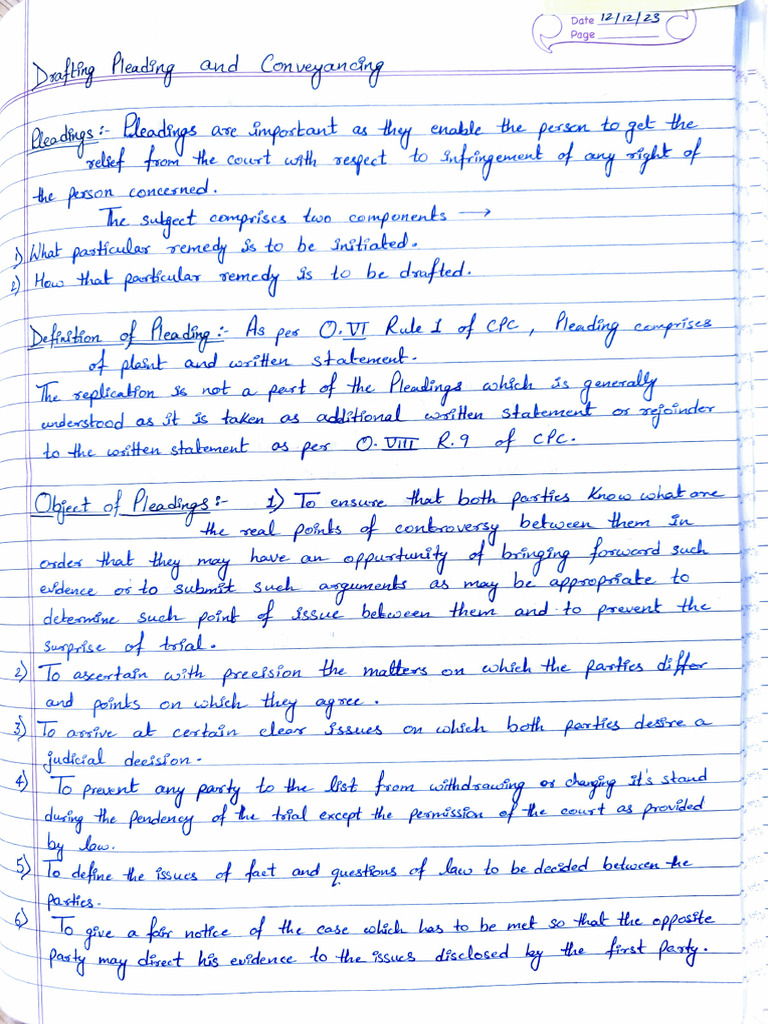 Date 12/12/23
Page
Drafting Pleading and Conveyancing
Pleadings :- Pleadings are important as they enable the person to get the
relief from the court with respect to infringement of any right of
the person concerned.
The subject comprises two components →
1) What particular remedy is to be initiated.
2) How that particular remedy is to be drafted.
Definition of Pleading :- As per O.VI Rule 1 of CPC, Pleading comprises
of plaint and written statement.
The replication is not a part of the Pleadings which is generally
understood as it is taken as additional written statement or rejoinder
to the written statement as per O.VIII R.9 of CPC.
Object of Pleadings :- 1) To ensure that both parties know what are
the real points of controversy between them in
order that they may have an oppurtunity of bringing forward such
evidence or to submit such arguments as may be appropriate to
determine such point of issue between them and to prevent the
surprise of trial.
2) To ascertain with precision the matters on which the parties differ
and points on which they agree.
3) To arrive at certain clear issues on which both parties desire a
judicial decision.
4) To prevent any party to the list from withdrawing or changing it's stand
during the pendency of the trial except the permission of the court as provided
by law.
5) To define the issues of fact and questions of law to be decided between the
parties.
6) To give a fair notice of the case which has to be met so that the opposite
party may direct his evidence to the issues disclosed by the first party.